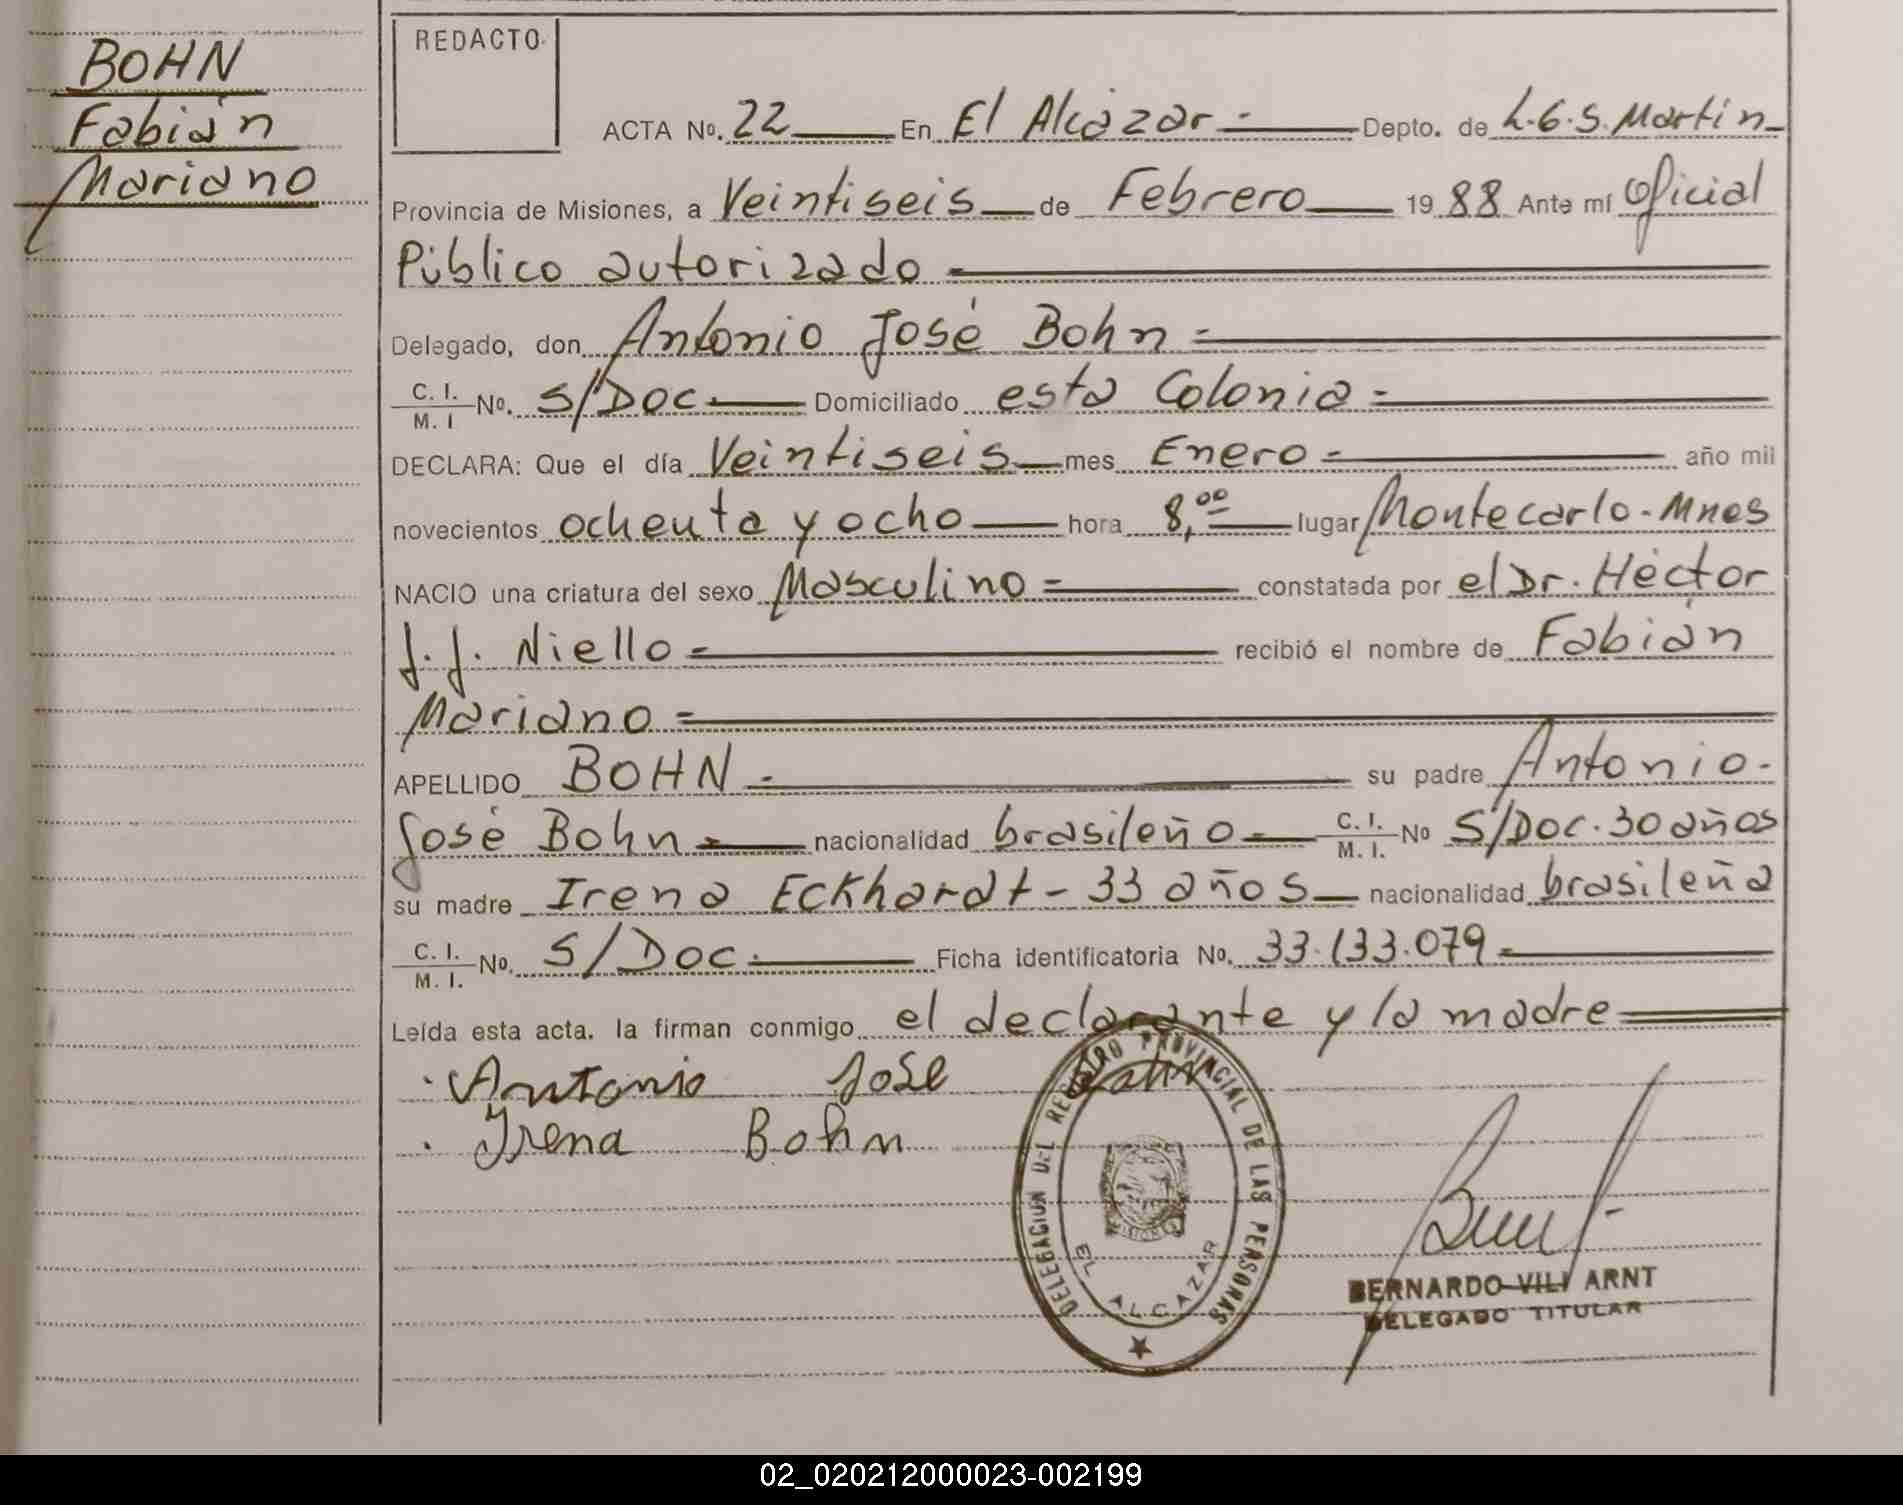 BOHN
Fabián
Mariano
REDACTO
ACTA No. 22 En El Alcázar Depto. de L.G.S. Martín
Provincia de Misiones, a Veintiseis de Febrero 1988 Ante mí Oficial
Público autorizado
Delegado, don Antonio José Bohn
C. I. / M. I No. S/Doc Domiciliado esta Colonia
DECLARA: Que el día Veintiseis mes Enero año mil
novecientos ochenta y ocho hora 8,00 lugar Montecarlo-Mnes
NACIO una criatura del sexo Masculino constatada por el Dr. Héctor
J. J. Niello recibió el nombre de Fabián
Mariano
APELLIDO BOHN su padre Antonio
José Bohn nacionalidad brasileño C. I. / M. I. No S/Doc. 30 años
su madre Irena Eckhardt - 33 años nacionalidad brasileña
C. I. / M. I. No. S/Doc. Ficha identificatoria No. 33.133.079
Leída esta acta. la firman conmigo el declarante y la madre
Antonio José
Irena Bohn
DELEGACION DEL REGISTRO PROVINCIAL DE LAS PERSONAS
MISIONES
EL ALCAZAR
BERNARDO VILI ARNT
DELEGADO TITULAR
02_020212000023-002199